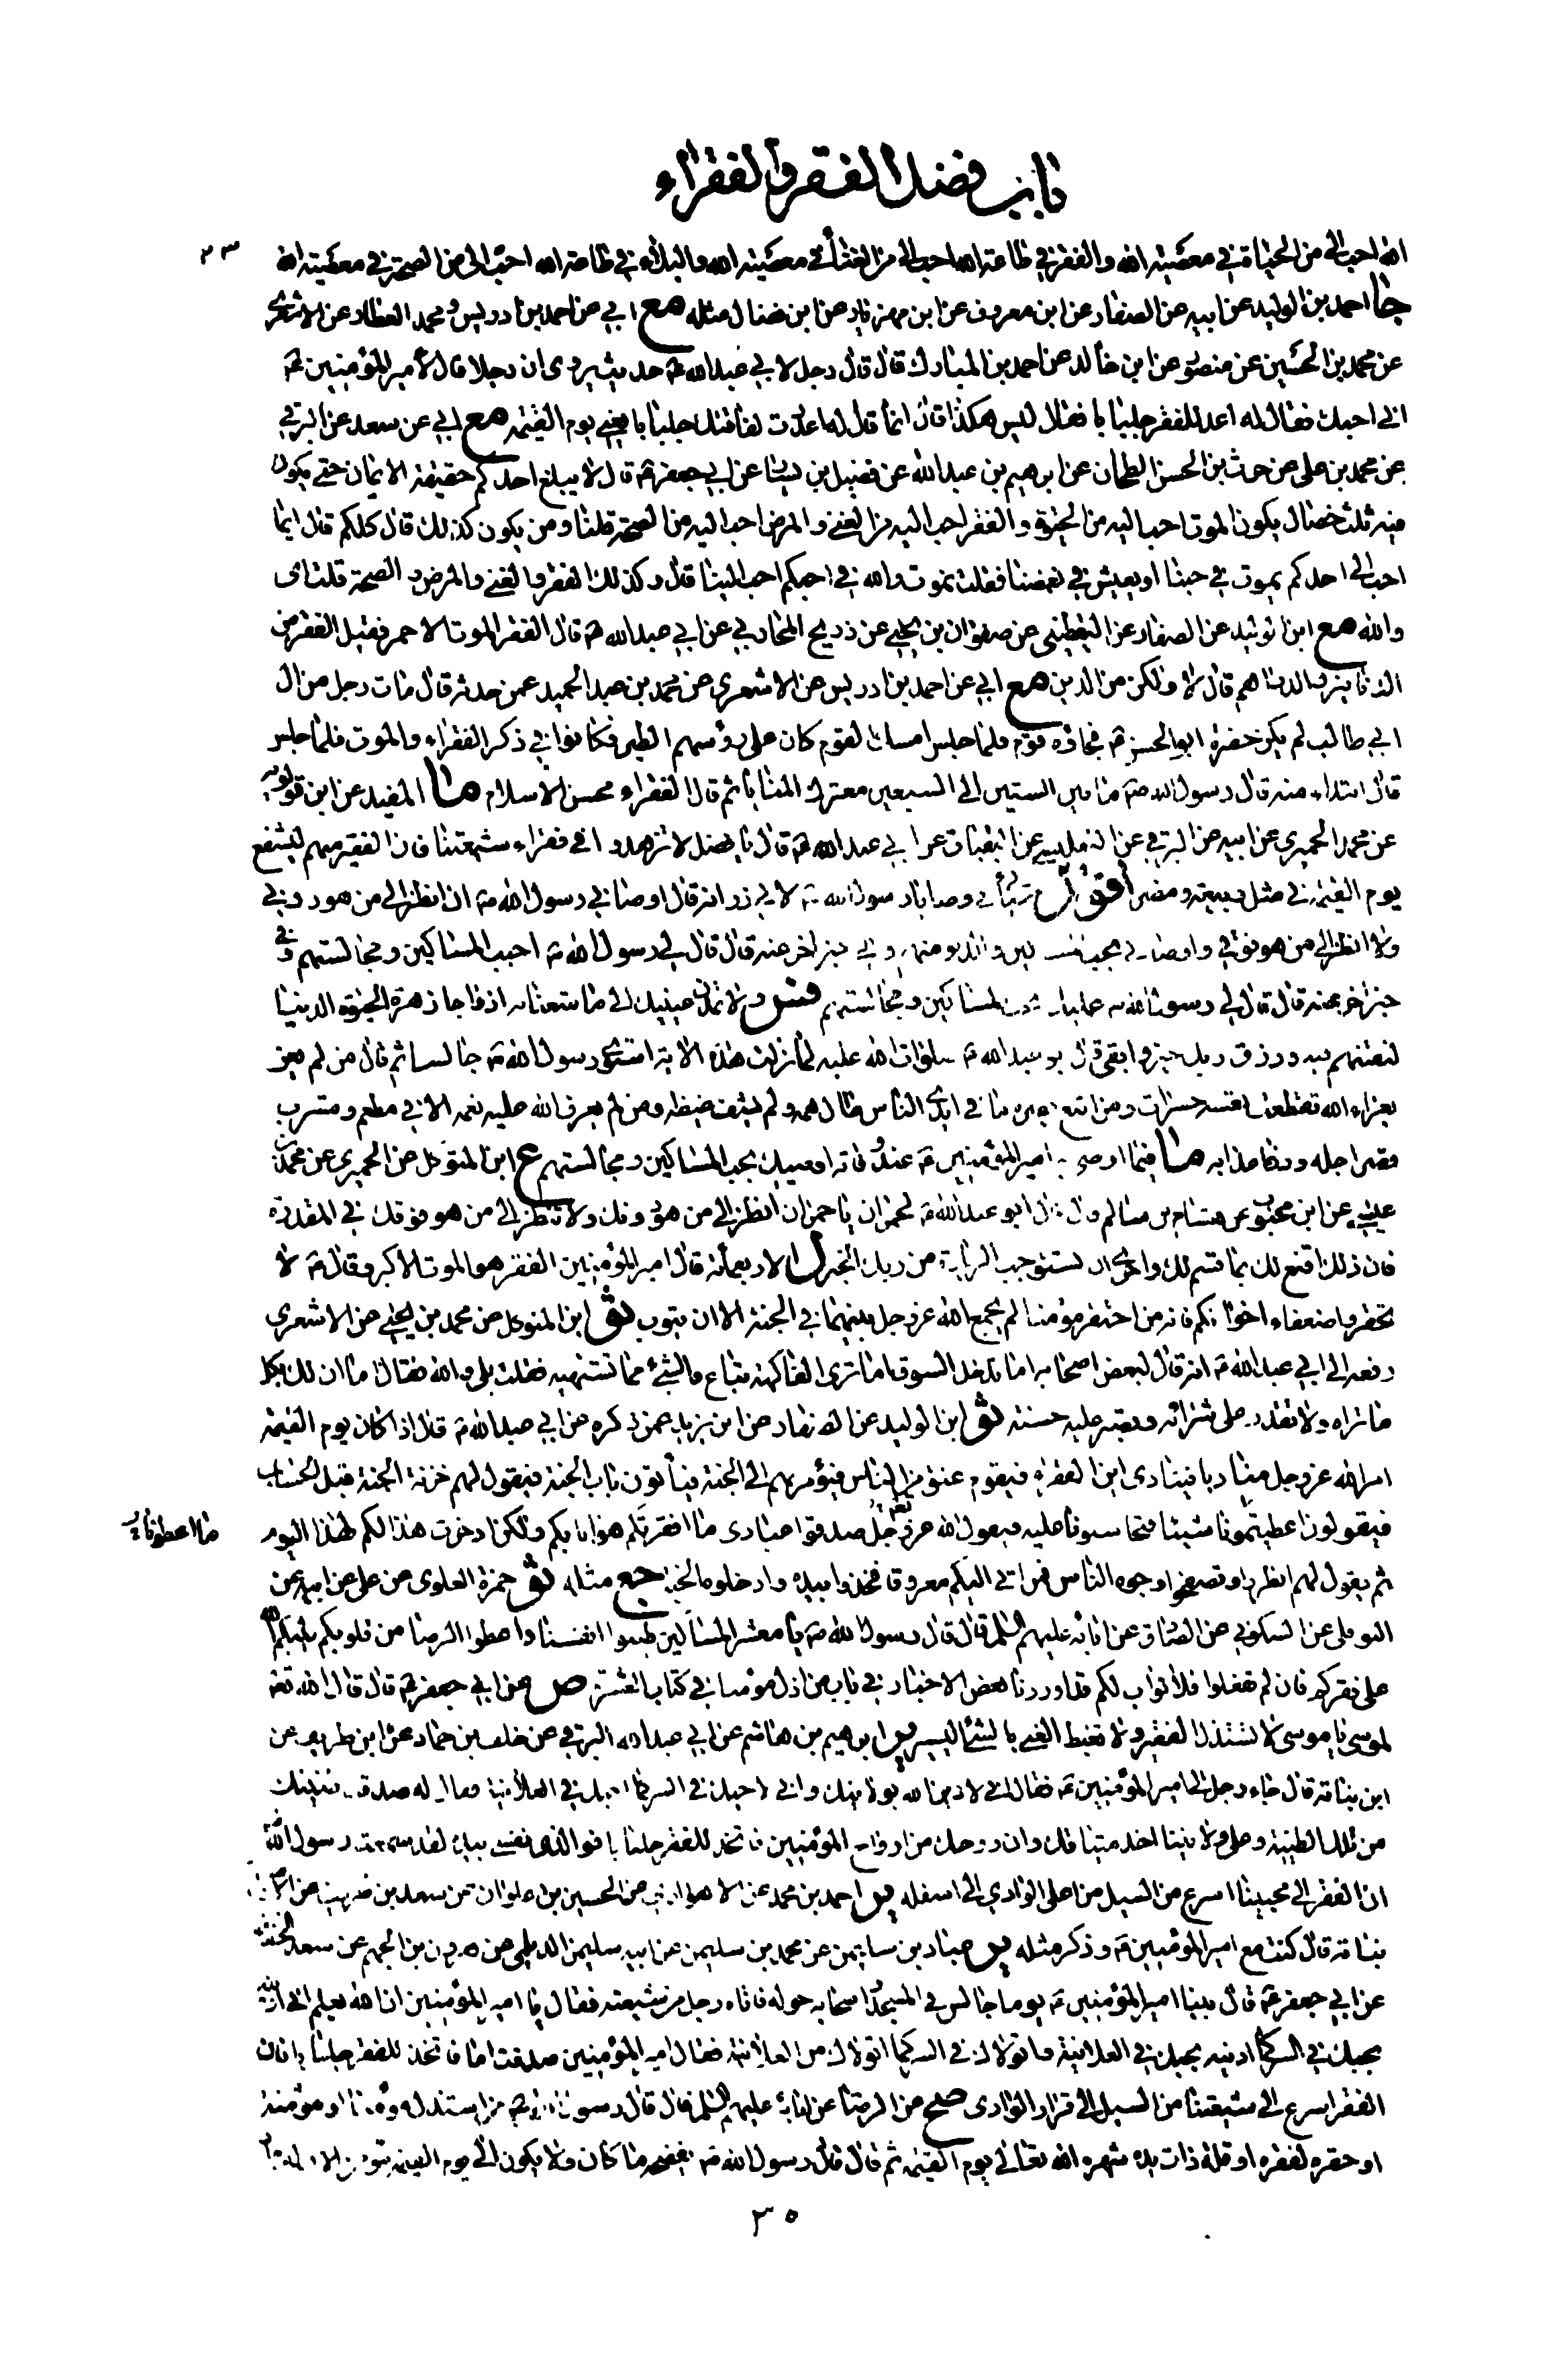 باب فضل الفقر والفقراء
الله احب الى من الحياة في معصية الله والفقر في طاعة الله احب الى من الغنا في معصية الله والبلاء في طاعة الله احب الى من الصحة في معصية الله
٢٣
جا احمد بن الوليد عن ابيه عن الصفار عن ابن معروف عن ابن مهزيار عن ابن فضال مثله مع ابي عن احمد بن ادريس ومحمد العطار عن الاشعري
عن محمد بن الحسين عن منصور عن ابن خالد عن احمد بن المبارك قال قال رجل لابي عبد الله ع حديث يروى ان رجلا قال لأمير المؤمنين ع
اني احبك فقال له اعد للفقر جلبابا فقال ليس هكذا قال انما قال له اعددت لفاقتك جلبابا يعني يوم القيمه مع ابي عن سعد عن البرقي
عن محمد بن علي عن حرث بن الحسن الطحان عن ابرهيم بن عبد الله عن فضيل بن يسار عن ابي جعفر ع قال لا يبلغ احدكم حقيقة الايمان حتى يكون
فيه ثلث خصال يكون الموت احب اليه من الحيوة والفقر احب اليه من الغنى والمرض احب اليه من الصحة قلنا ومن يكون كذلك قال كلكم قال ايما
احب الى احدكم يموت في حبنا او يعيش في بغضنا فقلت نموت والله في احبكم احب الينا قال وكذلك الفقر والغنى والمرض والصحة قلت اى
والله مع ابن الوليد عن الصفار عن اليقطيني عن صفوان بن يحيى عن ذريح المحاربي عن ابي عبد الله ع قال الفقر الموت الاحمر فقيل الفقر من
الدنانير والدراهم قال لا ولكن من الدين مع ابي عن احمد بن ادريس عن الاشعري عن محمد بن عبد الحميد عمن حدثه قال مات رجل من ال
ابي طالب لم يكن حضره ابو الحسن ع فجاؤه قوم فلما جلس امسك القوم كان على رؤسهم الطير فكانوا في ذكر الفقراء والموت فلما جلس
قال ابتداء منه قال رسول الله ص ما بين الستين الى السبعين معترك المنايا ثم قال الفقراء محسن الاسلام ما المفيد عن ابن قولويه
عن محمد الحميري عن ابيه عن البرقي عن عن ابي عبد الله ع قال يا فضل لا تزهدوا في فقراء شيعتنا فان الفقير منهم ليشفع
يوم القيمه في مثل ربيعة ومضر اقول في وصايا رسول الله ص لابي ذر انه قال اوصاني رسول الله ص ان انظر الى من هو دوني
ولا انظر الى من هو فوقي واوصاني بحب المساكين والدنو منهم وفي خبر اخر عنه قال قال لي رسول الله ص احبب المساكين ومجالستهم وفي
خبر اخر عنه قال قال لي رسول الله ص عليك بحب المساكين ومجالستهم فس ولا تمدن عينيك الى ما متعنا به ازواجا زهرة الحيوة الدنيا
لنفتنهم فيه ورزق ربك خير وابقى قال ابو عبد الله ع صلوات الله عليه لما نزلت هذه الاية استوى رسول الله ص جالسا ثم قال من لم يعز
بعزاء الله تقطعت نفسه حسرات ومن اتبع بصره ما في ايدي الناس طال همه ولم يشف غيظه ومن لم يعرف لله عليه نعمه الا في مطعم ومشرب
قصر اجله ودنا عذابه ما فيما اوصى به امير المؤمنين ع عند وفاته اوصيك بحب المساكين ومجالستهم ع ابن المتوكل عن الحميري عن محمد بن
عيسى عن ابن محبوب عن هشام بن سالم قال قال ابو عبد الله ع لحمران يا حمران انظر الى من هو دونك ولا تنظر الى من هو فوقك في المقدرة
فان ذلك اقنع لك بما قسم لك واحرى ان تستوجب الزيادة من ربك الخبر ل الاربعمائة قال امير المؤمنين الفقر هو الموت الاكبر وقال ع لا
تحقروا ضعفاء اخوانكم فانه من احتقر مؤمنا لم يجمع الله عز وجل بينهما في الجنة الا ان يتوب ثو ابن المتوكل عن محمد بن يحيى عن الاشعري
رفعه الى ابي عبد الله ع انه قال لبعض اصحابه اما تدخل السوق اما ترى الفاكهة تباع والشئ مما تشتهيه فقلت بلى والله فقال اما ان لك بكل
ما تراه ولا تقدر على شرائه وتصبر عليه حسنة ثو ابن الوليد عن الصفار عن ابن يزيد عمن ذكره عن ابي عبد الله ع قال اذا كان يوم القيمة
امر الله عز وجل مناديا فينادى اين الفقراء فيقوم عنق من الناس فيؤمر بهم الى الجنة فيأتون باب الجنة فيقول لهم خزنة الجنة قبل الحساب
فيقولون اعطيتمونا شيئا فتحاسبونا عليه فيقول الله عز وجل صدقوا عبادى ما افقرتكم هوانا بكم ولكن ادخرت هذا لكم لهذا اليوم
ما اعطونا
ثم يقول لهم انظروا وتصفحوا وجوه الناس فمن اتى اليكم معروفا فخذوا بيده وادخلوه الجنة جع مثله ثو حمزة العلوى عن علي عن ابيه عن
النوفلي عن السكوني عن الصادق عن ابائه عليهم السلم قال قال رسول الله ص يا معشر المساكين طيبوا انفسنا واعطوا الرضا من قلوبكم يثبكم الله
على فقركم فان لم تفعلوا فلا ثواب لكم قد اوردنا بعض الاخبار في باب من اذل مؤمنا في كتاب العشرة ص عن ابي جعفر ع قال قال الله تعه
لموسى يا موسى لا تستذل الفقير ولا تغبط الغني بالشئ اليسير ير ابرهيم بن هاشم عن ابي عبد الله البرقي عن خلف بن حماد عن ابن طريف عن
ابن نباتة قال جاء رجل الى امير المؤمنين ع فقال اني لادين الله بولايتك واني لاحبك في السر كما احبك في العلانية فقال له صدقت طينتك
من تلك الطينة وعلى ولايتنا اخذ ميثاقك وان روحك من ارواح المؤمنين فاتخذ للفقر جلبابا فوالذى نفسي بيده لقد سمعت رسول الله
ان الفقر الى محبينا اسرع من السيل من اعلى الوادي الى اسفله ير احمد بن محمد عن الاهوازي عن الحسين بن علوان عن سعد بن طريف عن
نباتة قال كنت مع امير المؤمنين ع وذكر مثله ير عباد بن سليمن عن محمد بن سليمن عن ابيه سليمن الديلمي عن هرون بن الجهم عن سعد الخفاف
عن ابي جعفر ع قال بينا امير المؤمنين ع يوما جالس في المسجد واصحابه حوله فاتاه رجل من شيعته فقال يا امير المؤمنين ان الله يعلم اني ادينه
بحبك في السر كما ادينه بحبك في العلانية واتولاك في السر كما اتولاك في العلانية فقال امير المؤمنين صدقت اما فاتخذ للفقر جلبابا فان
الفقر اسرع الى شيعتنا من السيل الى قرار الوادى صح عن الرضا عن ابائه عليهم السلم قال قال رسول الله ص من استذل مؤمنا او مؤمنة
او حقره لفقره او قلة ذات يده شهره الله تعالى يوم القيمة ثم يفضحه ما كان ولا يكون الى يوم القيمة
٣٥